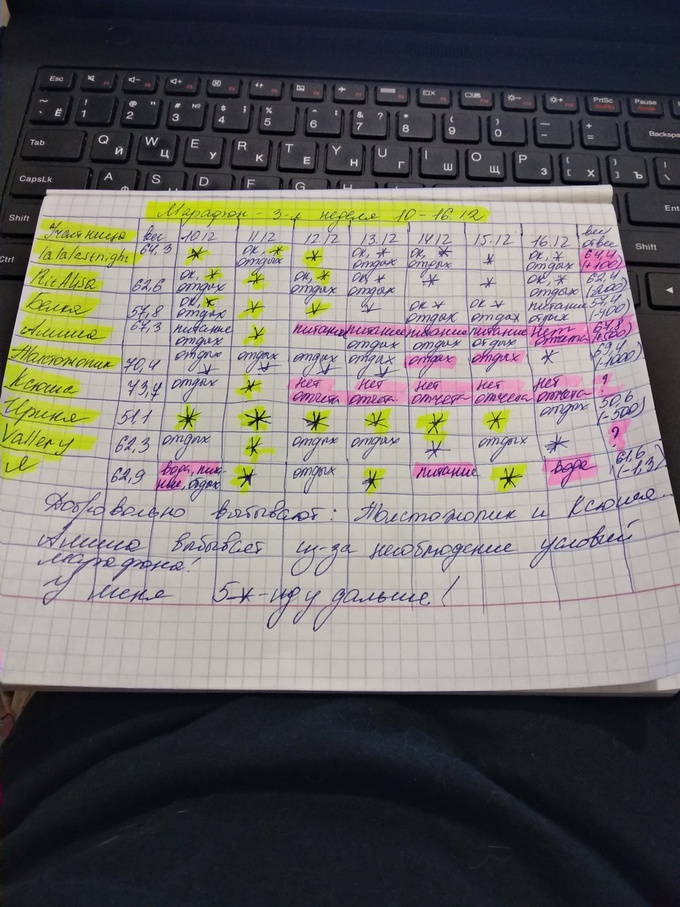 Esc
PrtSc
Pause
Ё 1 2 3 № 4 5 6 7 8 9 0 - =
Backspa
Tab Q Й W Ц E У R К T Е Y Н U Г I Ш O Щ P З Х Ъ
CapsLk A S D
Shift
Shift
Ctrl
Марафон - 3-я неделя 10-16.12
Участница вес 10.12 11.12 12.12 13.12 14.12 15.12 16.12 вес/отвес
64,3 * ок, * отдых * ок, * отдых ок, * отдых * ок, * отдых 64,4 (+100)
RitAlisa 62,6 ок, * отдых * ок, * отдых ок * отдых * * ок, * отдых 62,4 (-200)
Белка 57,8 ок, * отдых * * * ок * отдых ок * отдых питание отдых 57,4 (-400)
Алиша 67,3 питание отдых * питание питание отдых питание отдых питание отдых нет отчета 67,8 (+500)
Жопстожопик 70,4 отдых отдых * отдых * отдых * отдых отдых * 69,4 (-1000)
Ксюша 73,7 отдых * нет отчета нет отчета нет отчета нет отчета нет отчета ?
Ирина 51.1 * * * * * * отдых 50,6 (-500)
Vallery 62,3 отдых * отдых отдых * отдых * ?
Я 62,9 вода, питание, отдых * отдых * питание * вода 61,6 (-1,3)
Добровольно выбывают: и Ксюша..
Алиша выбывает из-за необлюдение условий
марафона!
У меня 5*-иду дальше!